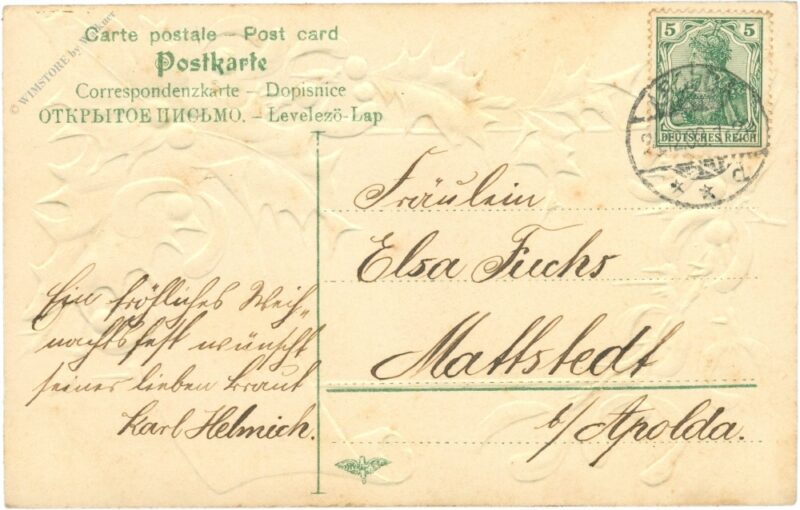 © WIMSTORE by W. Ulkner
Carte postale – Post card
Postkarte
Correspondenzkarte – Dopisnice
ОТКРЫТОЕ ПИСЬМО. – Levelezö-Lap
5 5
DEUTSCHES REICH
Fräulein
Elsa Fuchs
Mattstedt
b/Apolda.
Ein fröhliches Weih-
nachtsfest wünscht
seiner lieben Braut
Karl Helmich.